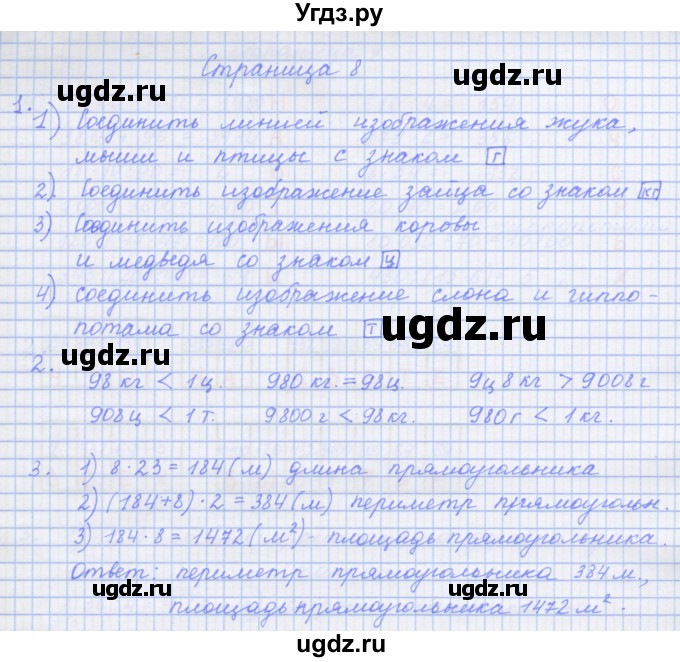 Угдз.ру
Страница 8
ugdz.ru ugdz.ru
1. 1) Соединить линией изображения жука,
мыши и птицы с знаком г
2) Соединить изображение зайца со знаком кг
3) Соединить изображения коровы
и медведя со знаком ц
ugdz.ru
4) соединить изображение слона и гиппо-
потама со знаком т
ugdz.ru
2. 98 кг < 1 ц. 980 кг. = 98 ц. 9 ц 8 кг > 9008 г
908 ц < 1 т. 9800 г < 98 кг. 980 г < 1 кг.
ugdz.ru
3. 1) 8·23=184(м) длина прямоугольника
2) (184+8)·2=384(м) периметр прямоугольн.
3) 184·8=1472(м²)- площадь прямоугольника.
Ответ: периметр прямоугольника 384 м.,
ugdz.ru ugdz.ru
площадь прямоугольника 1472 м².
ugdz.ru